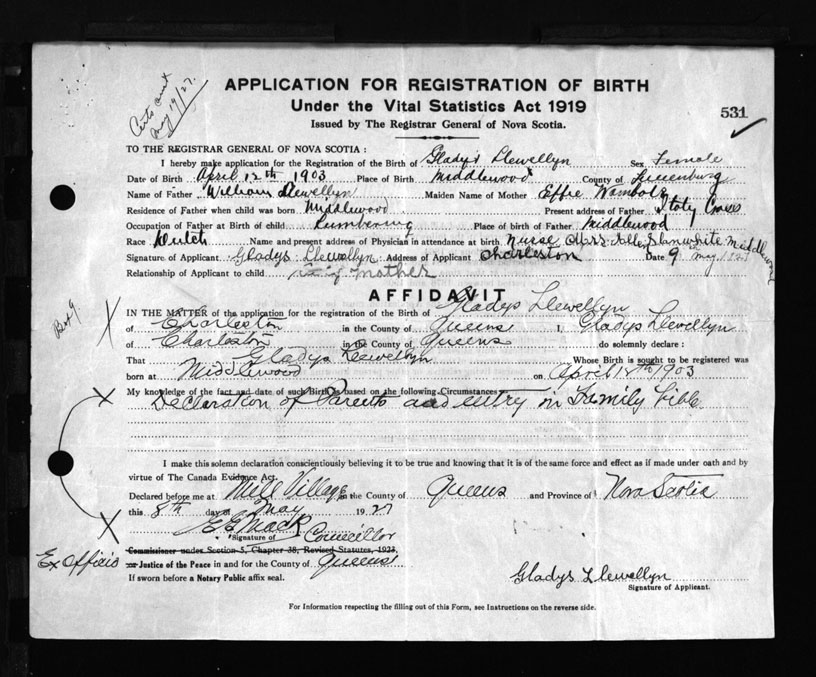 Certs sent
May 19/27.
APPLICATION FOR REGISTRATION OF BIRTH
Under the Vital Statistics Act 1919
531
Issued by The Registrar General of Nova Scotia.
TO THE REGISTRAR GENERAL OF NOVA SCOTIA :
I hereby make application for the Registration of the Birth of Gladys Llewellyn Sex Female
Date of Birth April 12th 1903 Place of Birth Middlewood County of Lunenburg
Name of Father William Llewellyn Maiden Name of Mother Effie Wambolt
Residence of Father when child was born Middlewood Present address of Father Italy Cross
Occupation of Father at Birth of child Lumbering Place of birth of Father Middlewood
Race Dutch Name and present address of Physician in attendance at birth Nurse, Mrs. Stanwhite Middlewood
Signature of Applicant Gladys Llewellyn Address of Applicant Charleston Date 9 May 1927
Relationship of Applicant to child mother
AFFIDAVIT
IN THE MATTER of the application for the registration of Birth of Gladys Llewellyn
of Charleston in the County of Queens I, Gladys Llewellyn
of Charleston in the County of Queens do solemnly declare :
That Gladys Llewellyn Whose Birth is sought to be registered was
born at Middlewood on April 12th 1903
My knowledge of the fact and date of such Birth is based on the following Circumstances
Declaration of Parents and entry in Family bible.
I make this solemn declaration conscientiously believing it to be true and knowing that it is of the same force and effect as if made under oath and by
virtue of The Canada Evidence Act.
Declared before me at Mill Village in the County of Queens and Province of Nova Scotia
this 8th day of May 1927
E E Mack
Signature of Councillor
Commissioner under Section 5, Chapter 38, Revised Statutes, 1923,
Ex officio or Justice of the Peace in and for the County of Queens
If sworn before a Notary Public affix seal.
Gladys Llewellyn
Signature of Applicant.
For Information respecting the filling out of this Form, see Instructions on the reverse side.